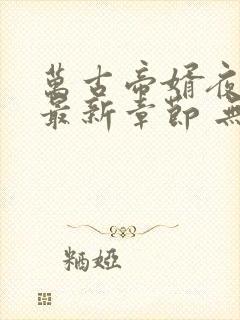 萬古帝婿夜
最新章節 無
糲婭